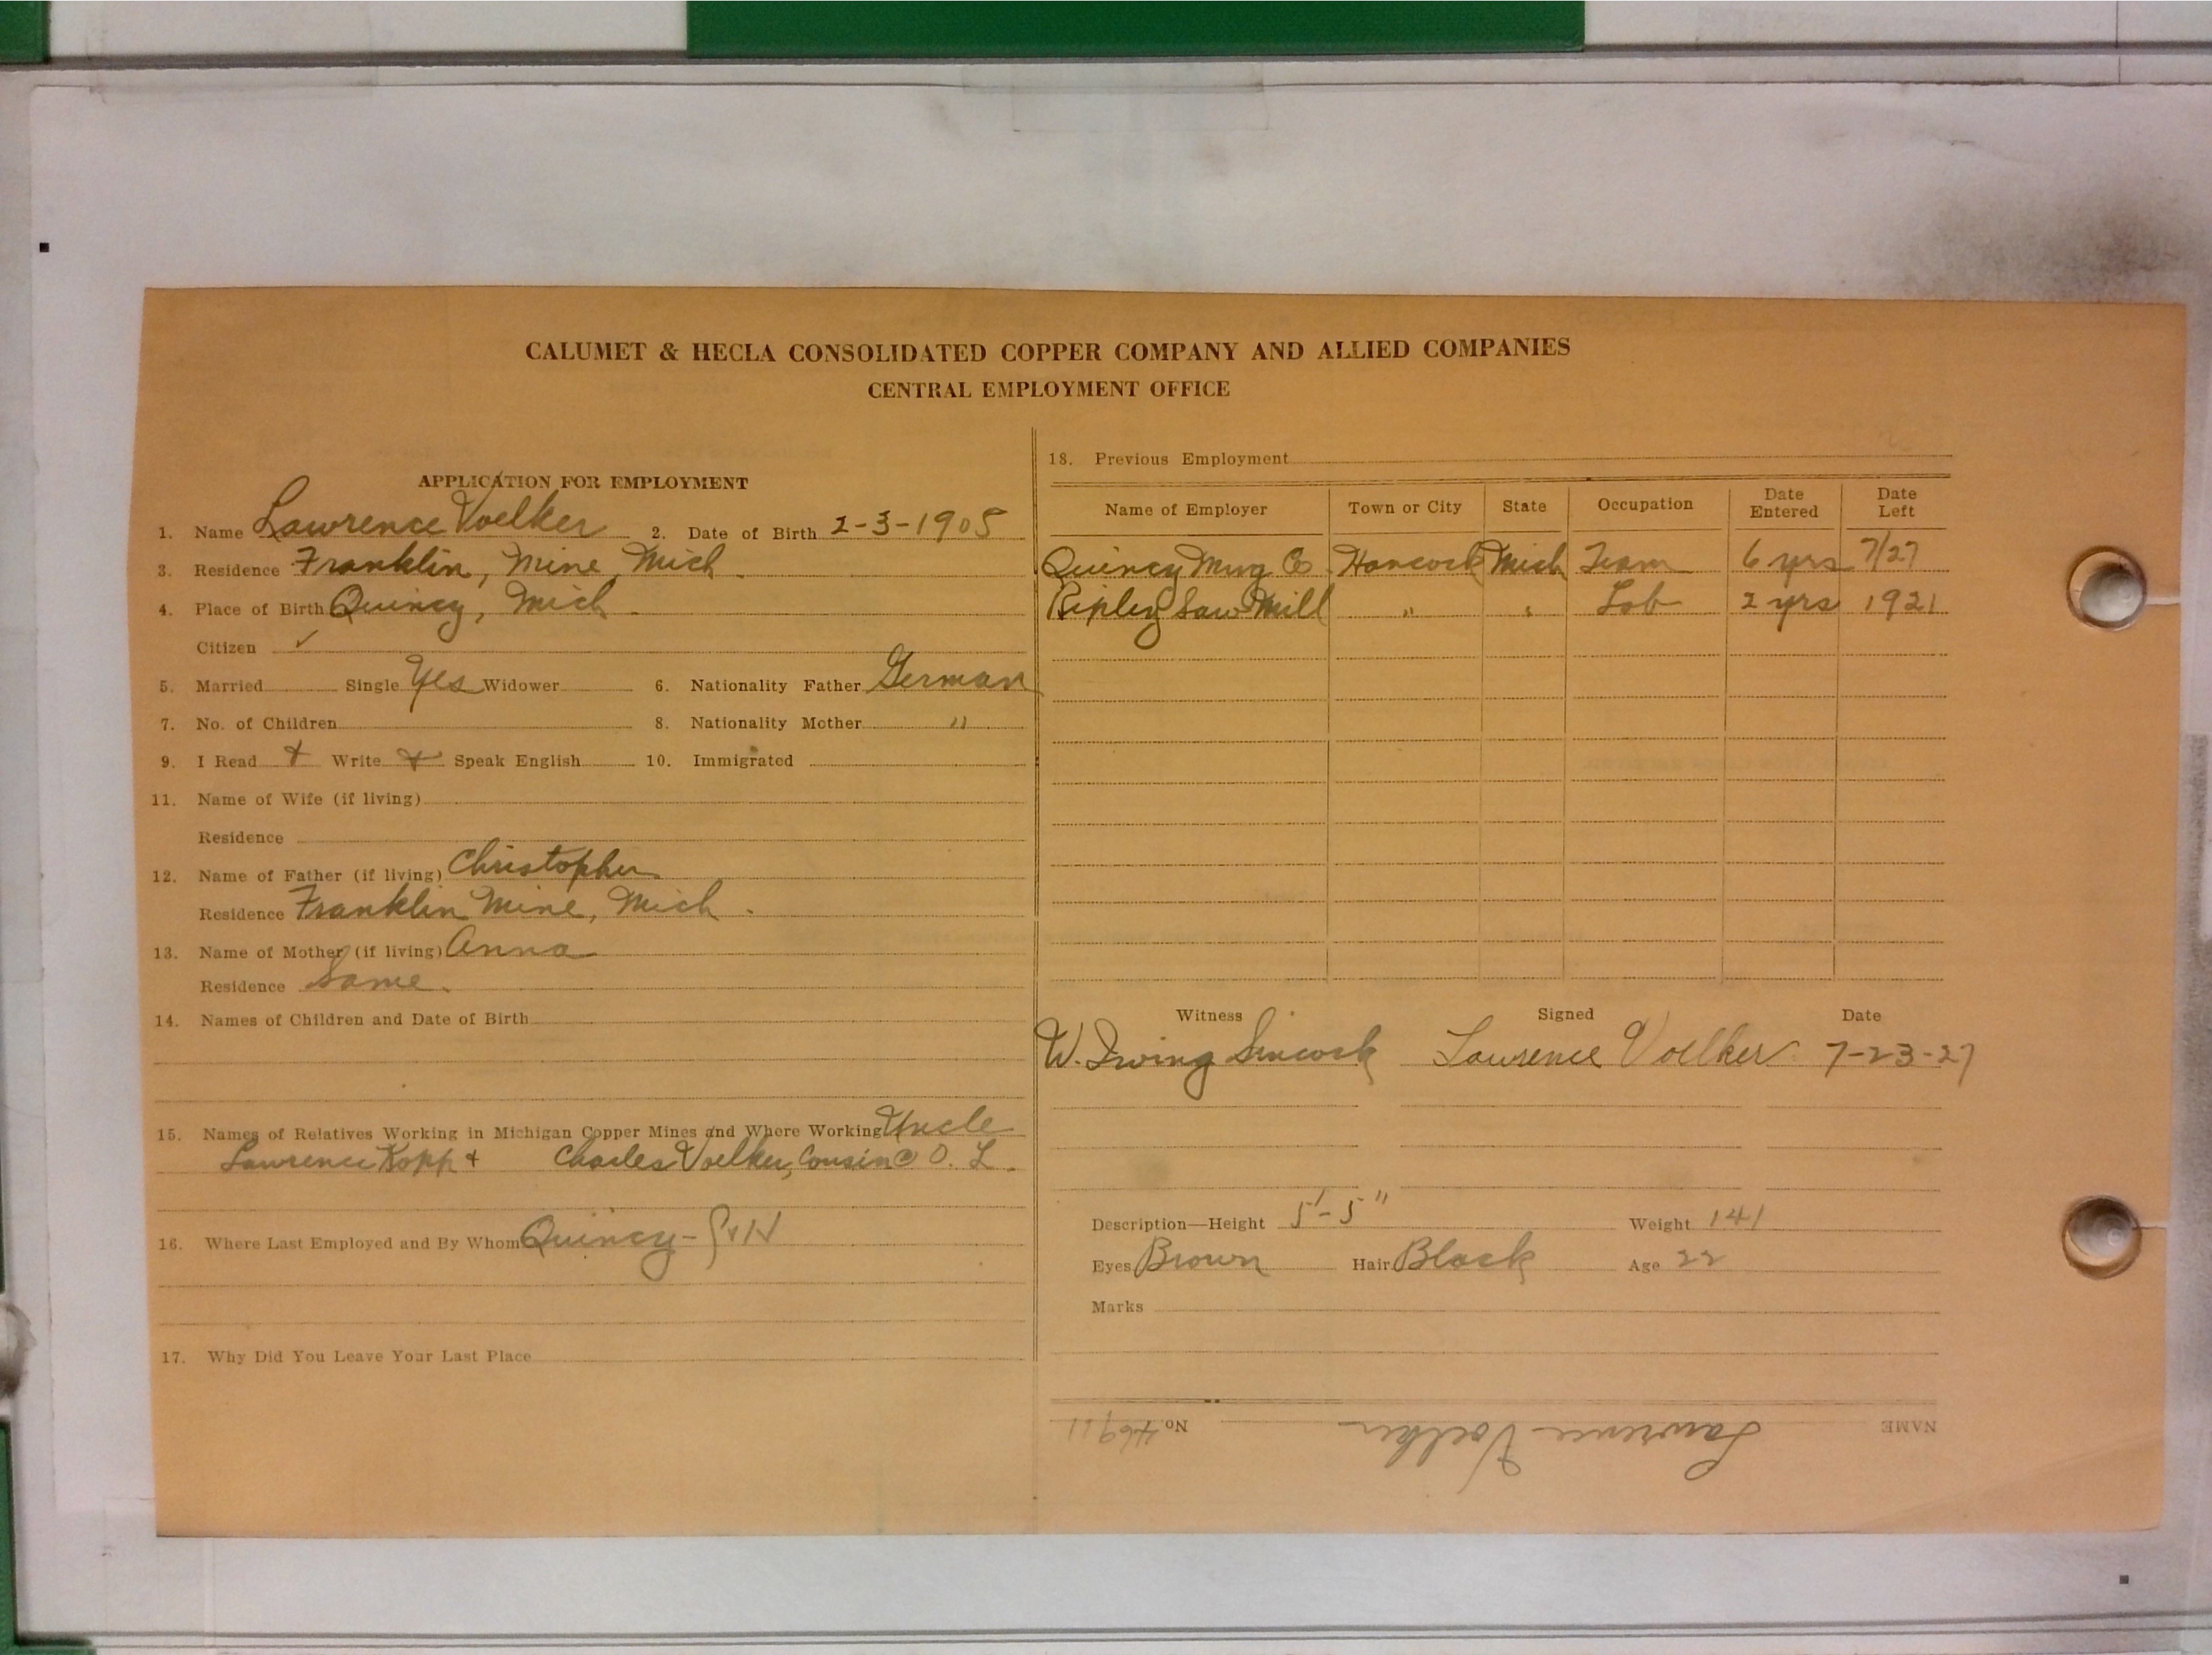 CALUMET & HECLA CONSOLIDATED COPPER COMPANY AND ALLIED COMPANIES
CENTRAL EMPLOYMENT OFFICE
APPLICATION FOR EMPLOYMENT
1. Name Lawrence Voelker 2. Date of Birth 2-3-1905
3. Residence Franklin, Mine, Mich.
4. Place of Birth Quincy, Mich.
Citizen ✓
5. Married Single Yes Widower 6. Nationality Father German
7. No. of Children 8. Nationality Mother "
9. I Read + Write + Speak English 10. Immigrated
11. Name of Wife (if living)
Residence
12. Name of Father (if living) Christopher
Residence Franklin Mine, Mich.
13. Name of Mother (if living) Anna
Residence Same.
14. Names of Children and Date of Birth
15. Names of Relatives Working in Michigan Copper Mines and Where Working Uncle
Lawrence Kopp + Charles Voelker, Cousin @ O. L.
16. Where Last Employed and By Whom Quincy-
17. Why Did You Leave Your Last Place
18. Previous Employment
Name of Employer Town or City State Occupation Date Entered Date Left
Quincy Mng Co Hancock Mich Team 6 yrs 7/27
Ripley Saw Mill " " Lab 2 yrs 1921
Witness Signed Date
W. Irving Sincock Lawrence Voelker 7-23-27
Description—Height 5'-5" Weight 141
Eyes Brown Hair Black Age 22
Marks
NAME Lawrence Voelker No. 46911